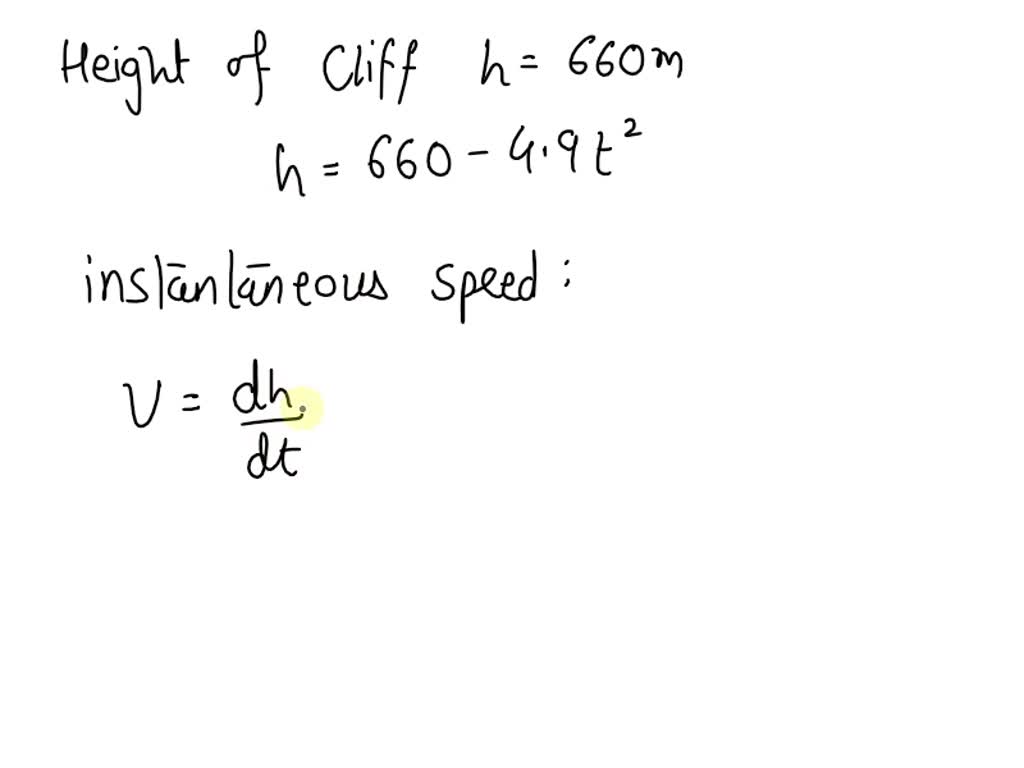 Height of Cliff h = 660m
h = 660 - 4.9t²
instantaneous speed :
V = dh/dt